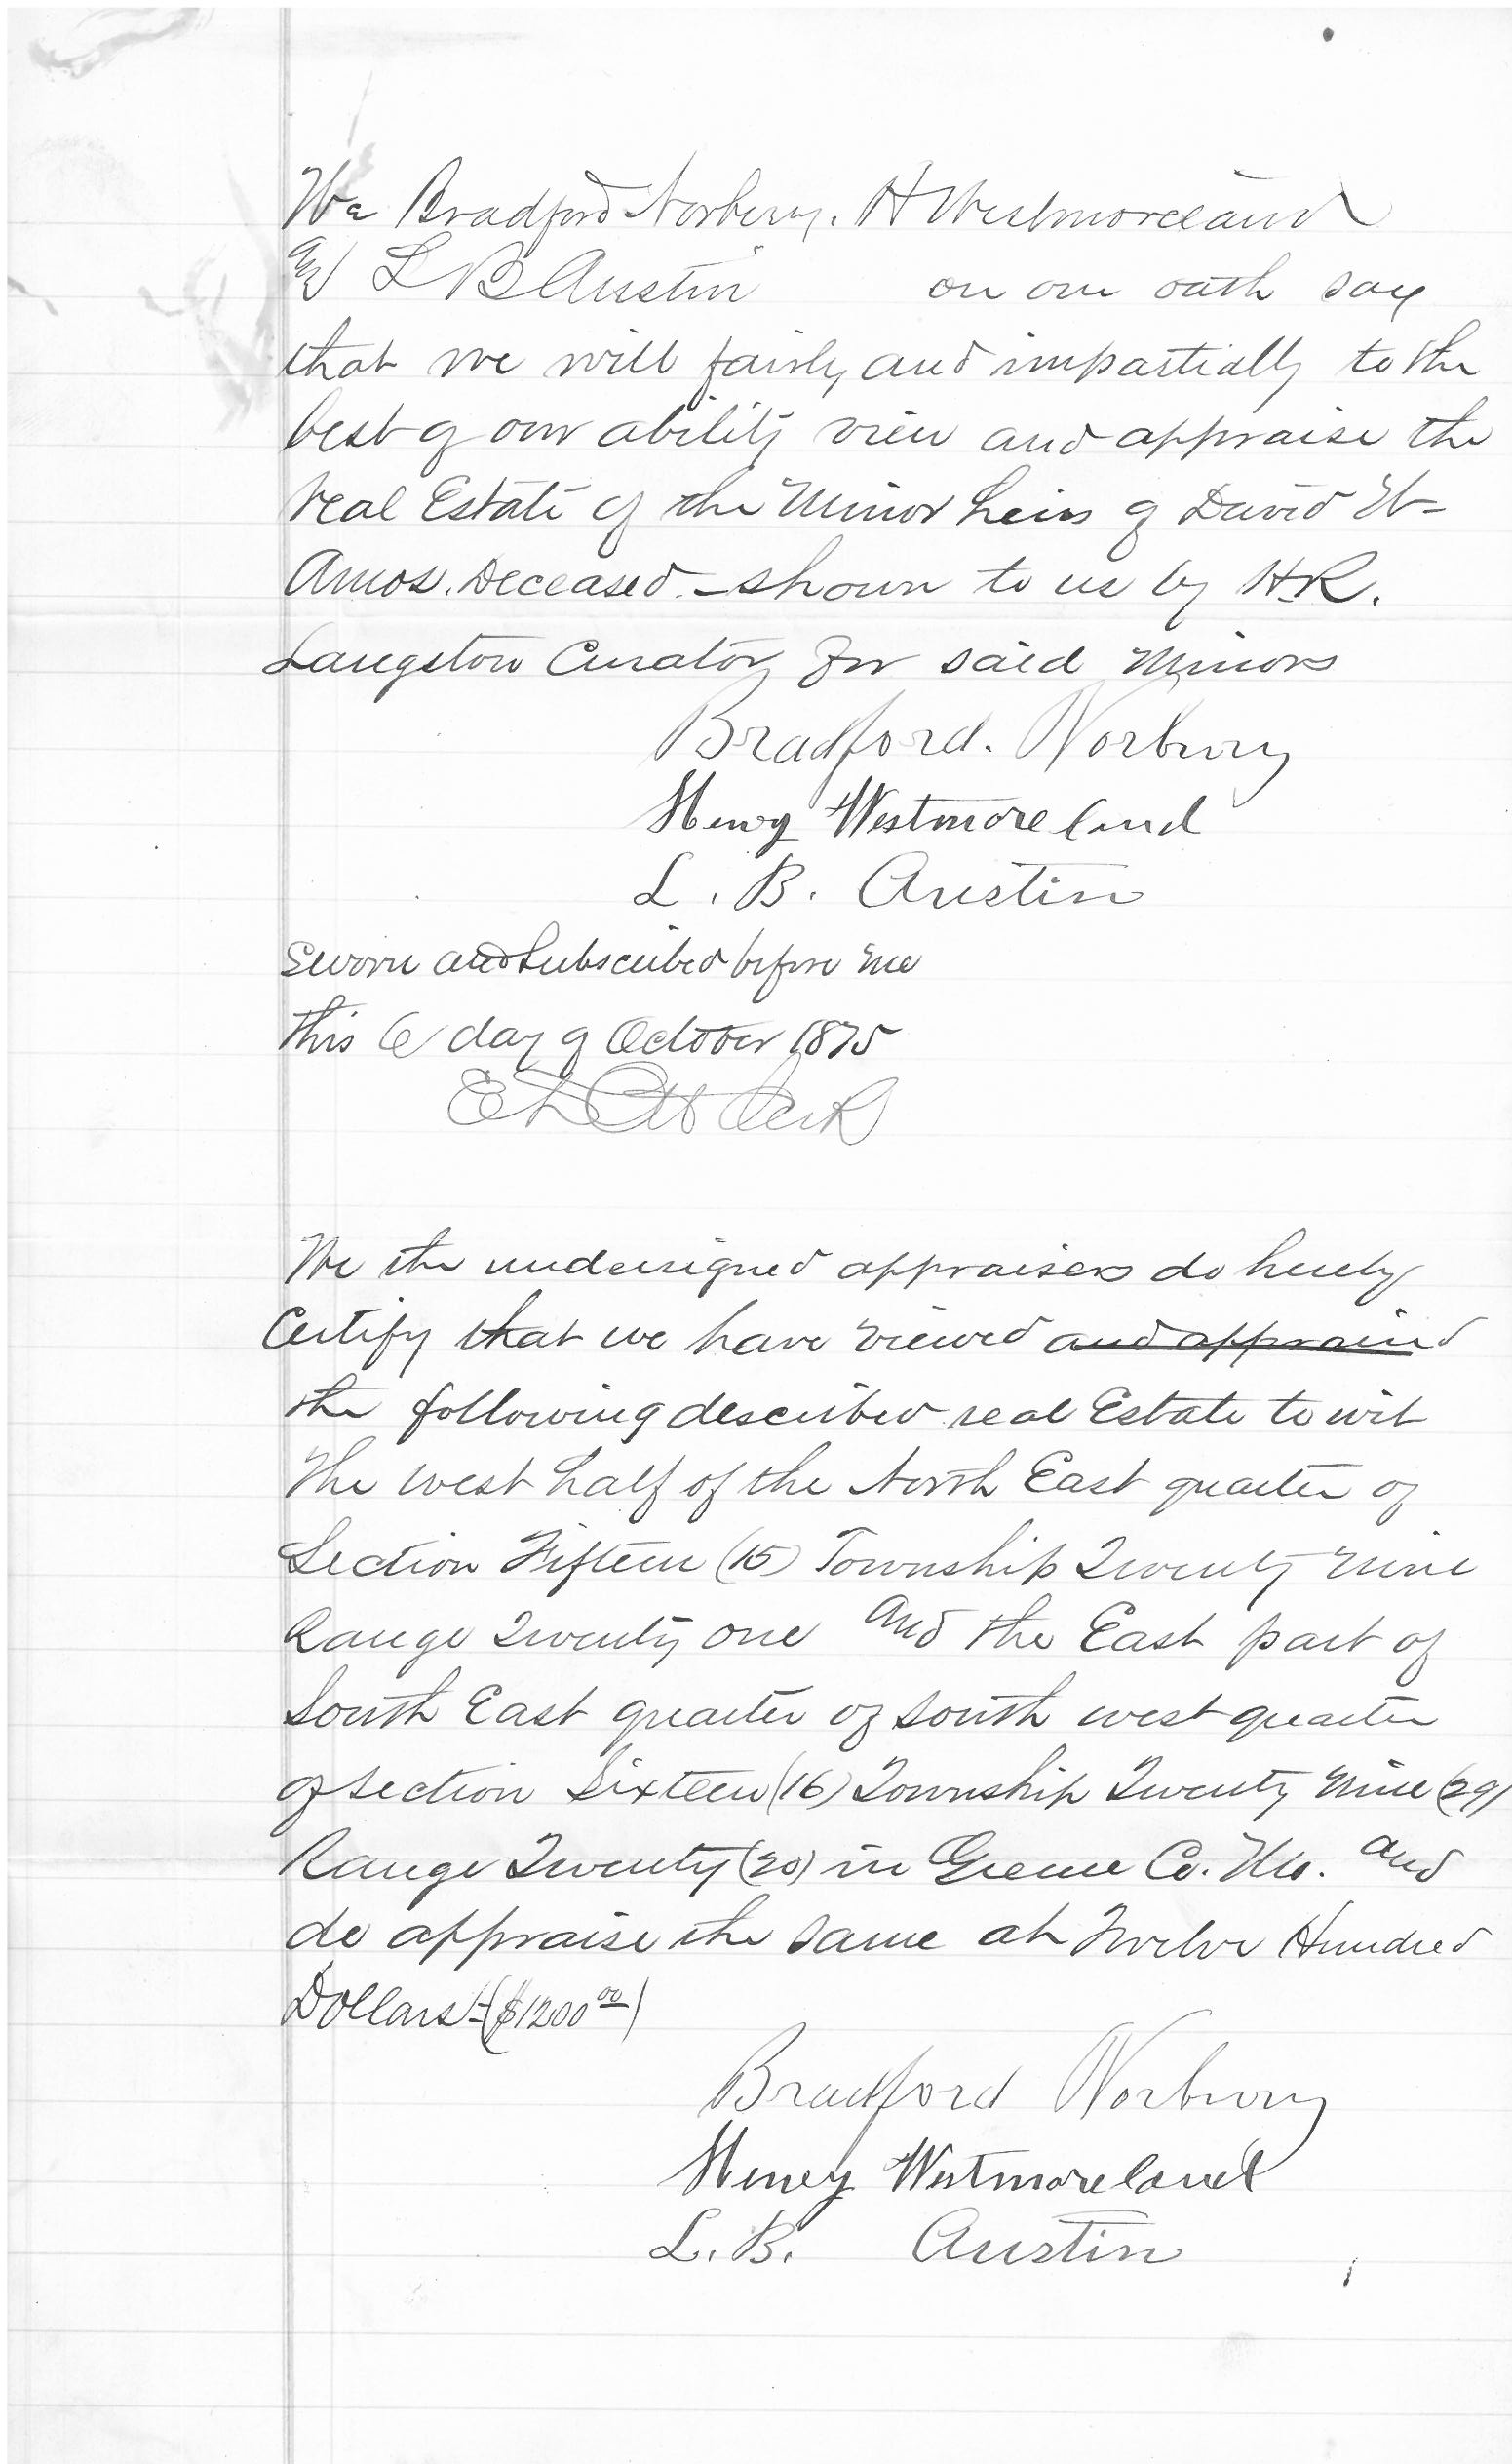 We Bradford Norbury. H Westmoreland
and L B Austin on our oath say
that we will fairly and impartially to the
best of our ability view and appraise the
real Estate of the Minor heirs of David W
Amos. Deceased - shown to us by H.R.
Langston Curator for said Minors
Bradford. Norbury
Henry Westmoreland
L. B. Austin
Sworn and Subscribed before me
this 6 day of October 1875
Clerk
We the undersigned appraisers do hereby
Certify that we have viewed and appraised
the following described real Estate to wit
The west half of the North East quarter of
Section Fifteen (15) Township Twenty nine
Range Twenty one and the East part of
South East quarter of South west quarter
of section Sixteen (16) Township Twenty Nine (29)
Range Twenty (20) in Greene Co. Mo. and
do appraise the same at Twelve Hundred
Dollars - ($1200 00)
Bradford Norbury
Henry Westmoreland
L. B. Austin